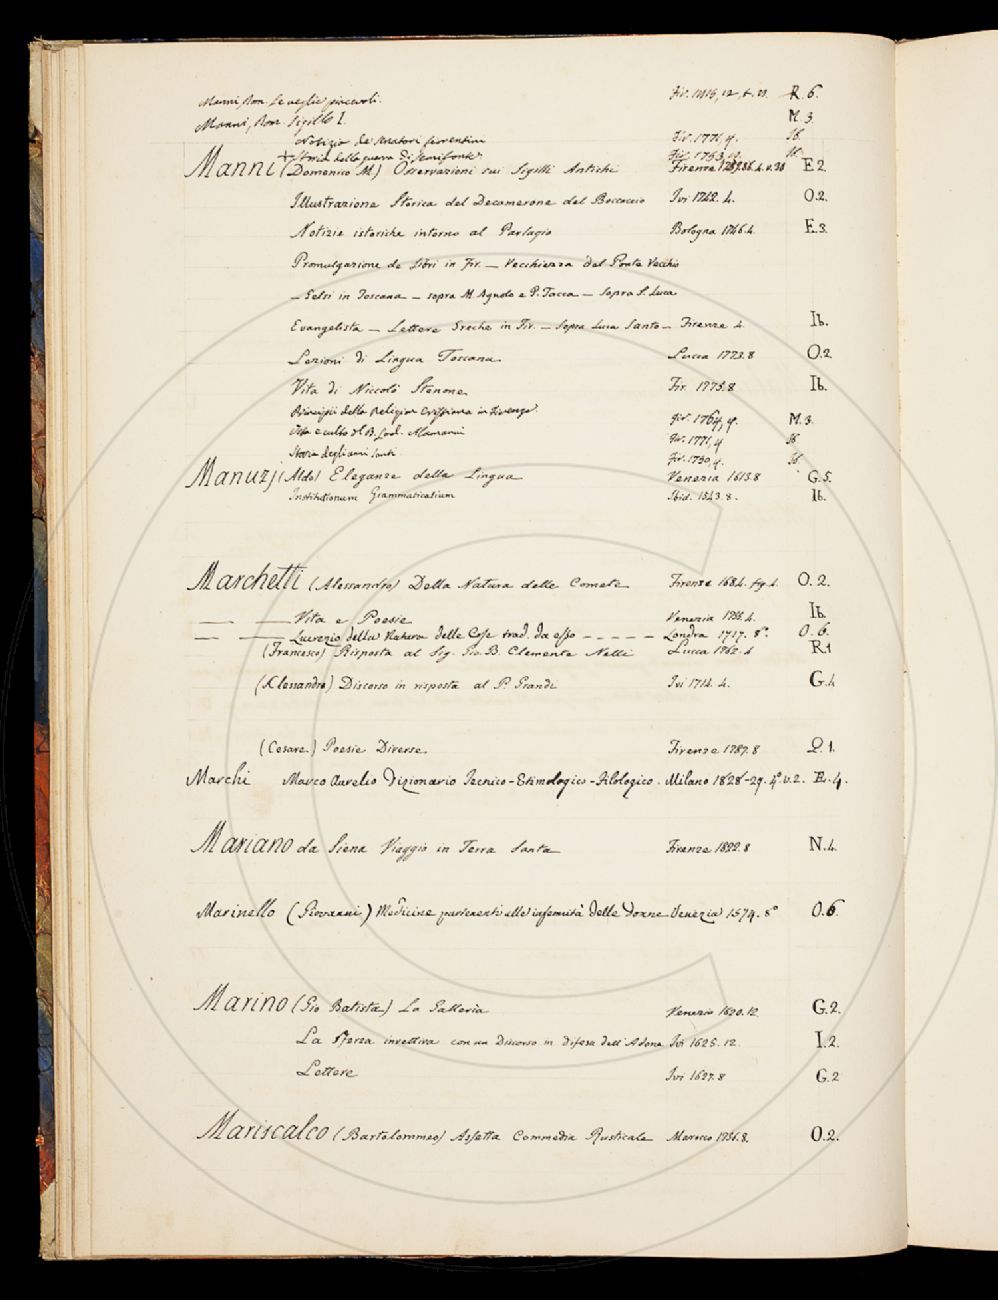 Manni, Dom. Le veglie piacevoli. Fir. 1815, 12, t. R. 6.
Manni, Dom. Sigillo I. M. 3.
Notizie de' Senatori fiorentini Fir. 1771, 4. Ib.
+ Storia della guerra di Semifonte. Fir. 1753, Ib.
Manni (Domenico M.) Osservazioni sui Sigilli Antichi Firenze E 2.
Illustrazione Storica del Decamerone del Boccaccio Ivi 1742. 4. O.2.
Notizie istoriche intorno al Parlagio Bologna 1746.4. E.3.
Promulgazione de Libri in Fir. — Vecchiezza del Ponte Vecchio
— Gelsi in Toscana — sopra M. Agnolo e P. Tacca — Sopra S. Luca
Evangelista — Lettere Greche in Fir. — Sopra Luca Santo — Firenze 4. Ib.
Lezioni di Lingua Toscana Lucca 1773.8 O.2
Vita di Niccolò Stenone Fir. 1775.8 Ib.
Principii della Religion Cristiana in Firenze. Fir. 1764, 4. M. 3.
Vita e culto del B. Lod. Alamanni Fir. 1771, 4 Ib.
Storia degli anni Santi. Fir. 1750, 4. Ib.
Manuzj (Aldo) Eleganze della Lingua Venezia 1613.8 G. 5.
Institutionum Grammaticalium Ibid. 1543. 8. Ib.
Marchetti (Alessandro) Della Natura delle Comete Firenze 1684. fig. 4. O. 2.
— — Vita e Poesie Venezia 1755.4. Ib.
— — Lucrezio della Natura delle Cose trad. da esso - - - - - Londra 1717. 8°. O. 6.
(Francesco) Risposta al Sig. Gio. B. Clemente Nelli Lucca 1762. 4 R.1
(Alessandro) Discorso in risposta al P. Grandi Ivi 1714. 4. G.4
(Cesare) Poesie Diverse Firenze 1787.8 Q. 1.
Marchi Marco Aurelio Dizionario Tecnico-Etimologico-Filologico. Milano 1828-29. 4°. v. 2. E. 4.
Mariano da Siena Viaggio in Terra Santa Firenze 1822.8 N.4.
Marinello (Giovanni) Medicine partenenti alle infermità delle donne Venezia 1574. 8° O.6.
Marino (Gio Batista) La Galleria Venezia 1620.12. G.2.
La Sferza invettiva con un Discorso in difesa dell' Adone Ivi 1625. 12. I.2.
Lettere Ivi 1627.8 G.2
Mariscalco (Bartolommeo) Assetta Commedia Rusticale Marocco 1756.8. O.2.